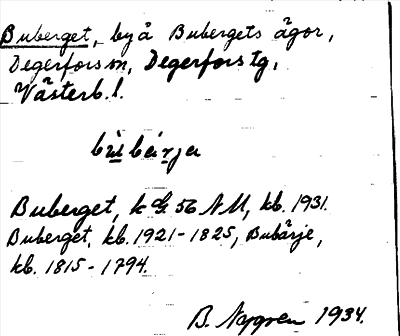 Buberget, by å Bubergets ägor,
Degerfors sn, Degerfors tg,
Västerb. l.
Buberget, k G. 56 NM, kb. 1931.
Buberget, kb. 1921-1825, Bubärje,
kb. 1815-1794.
B. Nygren 1934.